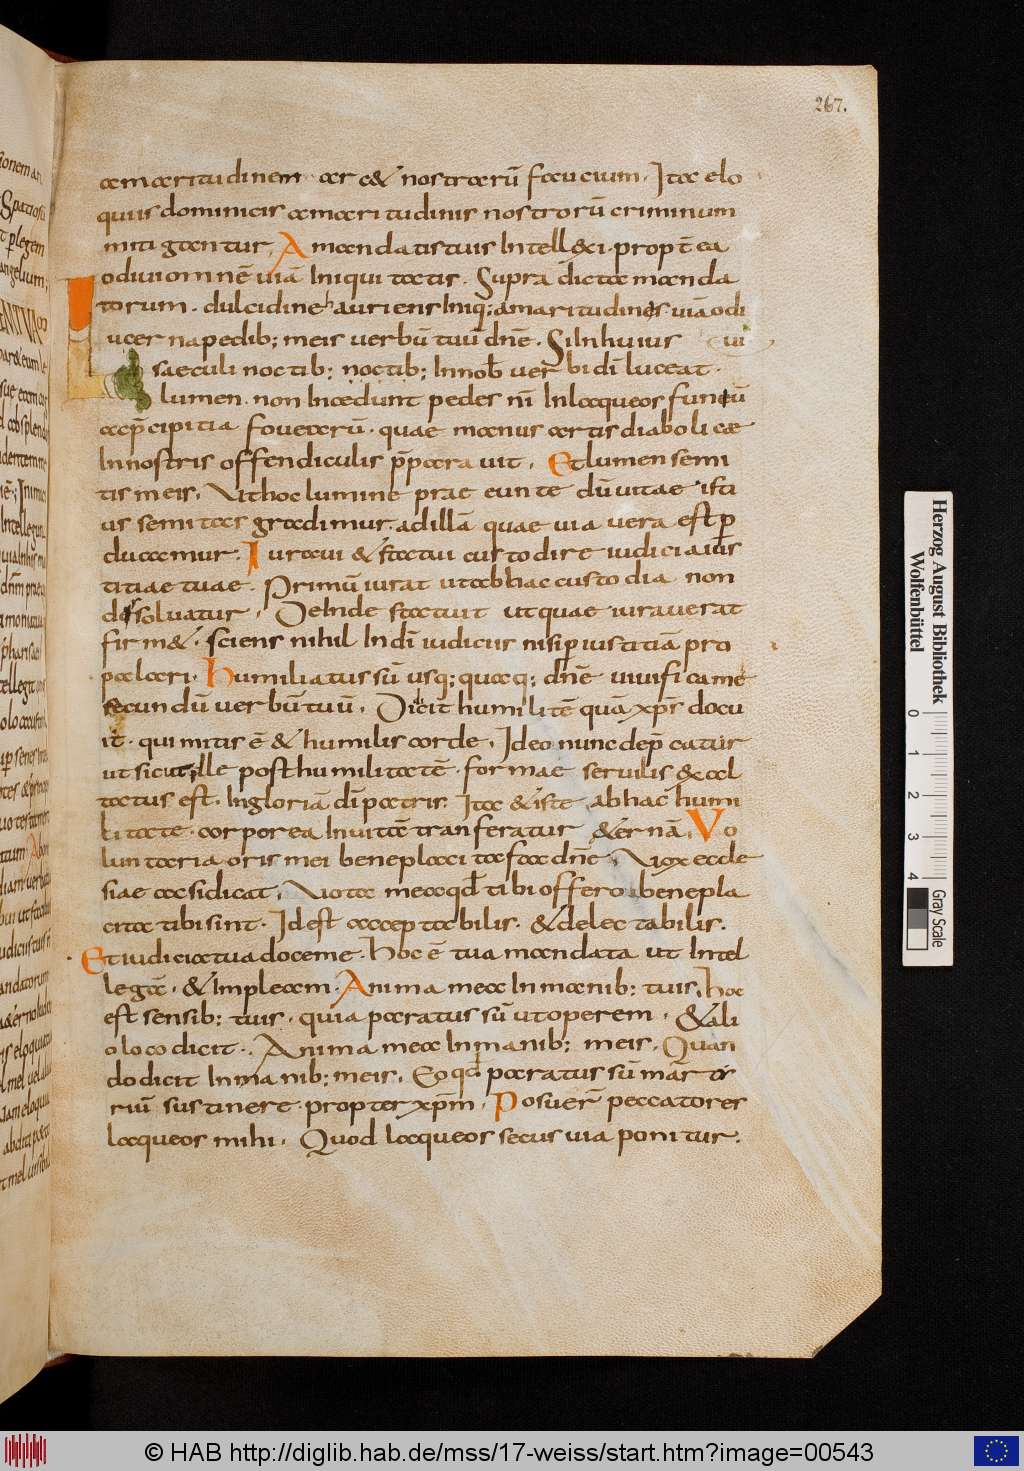 267.
amaritudinem arc& nostrarũ faucium. Ita elo
quiis dominicis amaritudinis nostrorũ criminum
mitigantur, A mandatis tuis Intell&xi. propt̄ ea
odivi omnē viā Iniquitatis. Supra dicta manda
torum. dulcidine hauriens Iniq; amaritudinis viā odi
Lucerna pedib; meis verbũ tuũ dñe. Si In huius vi
saeculi noctib; noctib; In nob̄ verbi dī luceat.
lumen. non Incedunt pedes nr̄i In laqueos funeũ
acp̄cipitia fovearũ. quae manus artis diabolicae
In nostris offendiculis p̄paravit. Et lumen semi
tis meis. Vt hoc lumine prae eunte dũ vitae isti
us semitas gradimur. ad illā quae via vera est p
ducamur. Iuravi & statui custodire iudicia ius
titiae tuae. Primũ iurat ut ab hac custodia non
dissolvatur. Deinde statuit ut quae iuraverat
firm&. sciens nihil In dī iudiciis nisi p iustitiā pro
palari. Humiliatus sũ usq; quaq; dñe vivifica me
secundũ verbũ tuũ. Dicit humilitē quā xp̄s docu
it. qui mitis ē & humilis corde. Ideo nunc dep̄catur
ut sicut ille post humilitatē. formae servilis &xal
tatus est. In gloriā dī patris. Ita & iste ab hac humi
litate. corporea In vitā transferatur &ernā. Vo
luntaria oris mei beneplaci ta fac dñe. Vox eccle
siae ac si dicat. Vota mea qd̄ tibi offero benepla
cita tibi sint. Id est acceptabilis. & delectabilis.
Et iudicia tua doce me. Hoc ē tua mandata ut Intel
legā. & Impleam. Anima mea In manib; tuis. hoc
est sensib; tuis. quia paratus sũ ut operem. & ali
o loco dicit. Anima mea In manib; meis. Quan
do dicit In manib; meis. Eo qd̄ paratus sũ mar̄tir
riũ sustinere. propter xp̄m. Posuer̄ peccatores
laqueos mihi. Quod laqueos secus via ponitur.
Herzog August Bibliothek
Wolfenbüttel
0 1 2 3 4
Gray Scale
© HAB http://diglib.hab.de/mss/17-weiss/start.htm?image=00543